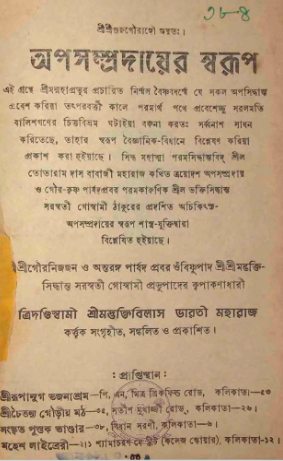 ৩৮৪
শ্রীশ্রীগুরুগৌরাঙ্গৌ জয়তঃ।
অপসম্প্রদায়ের স্বরূপ
এই গ্রন্থে শ্রীমন্মহাপ্রভুর প্রচারিত নির্ম্মল বৈষ্ণবধর্ম্মে যে সকল অপসিদ্ধান্ত
প্রবেশ করিয়া তৎপরবর্তী কালে পরমার্থ পথে প্রবেশেচ্ছু সরলমতি
বালিশগণের চিত্তবিভ্রম ঘটাইয়া বঞ্চনা করতঃ সর্বনাশ সাধন
করিতেছে, তাহার স্বরূপ বৈজ্ঞানিক-বিধানে বিশ্লেষণ করিয়া
প্রকাশ করা হইয়াছে। সিদ্ধ মহাত্মা পরমসিদ্ধান্তবিদ্ শ্রীল
তোতারাম দাস বাবাজী মহারাজ কথিত ত্রয়োদশ অপসম্প্রদায়
ও গৌর-কৃষ্ণ পার্ষদপ্রবর পরমকারুণিক শ্রীল ভক্তিসিদ্ধান্ত
সরস্বতী গোস্বামী ঠাকুরের প্রদর্শিত অচিকিৎস্য-
অপসম্প্রদায়ের স্বরূপ শাস্ত্র-যুক্তিদ্বারা
বিশ্লেষিত হইয়াছে।
শ্রীশ্রীগৌরনিজজন ও অন্তরঙ্গ পার্ষদ প্রবর ওঁবিষ্ণুপাদ শ্রীশ্রীমদ্ভক্তি-
সিদ্ধান্ত সরস্বতী গোস্বামী প্রভুপাদের কৃপাকণাধারী
ত্রিদণ্ডিস্বামী শ্রীমদ্ভক্তিবিলাস ভারতী মহারাজ
কর্ত্তৃক সংগৃহীত, সঙ্কলিত ও প্রকাশিত।
: প্রাপ্তিস্থান :
শ্রীরূপানুগ ভজনাশ্রম—পি, এন, মিত্র ব্রিকফিল্ড রোড, কলিকাতা—৫৩
শ্রীচৈতন্য গৌড়ীয় মঠ—৩৫, সতীশ মুখার্জ্জী রোড, কলিকাতা—২৬।
সংস্কৃত পুস্তক ভাণ্ডার—৩৮, বিধান সরণী, কলিকাতা—৬।
মহেশ লাইব্রেরী—২।১ শ্যামাচরণ দে স্ট্রীট (কলেজ স্কোয়ার), কলিকাতা-১২।